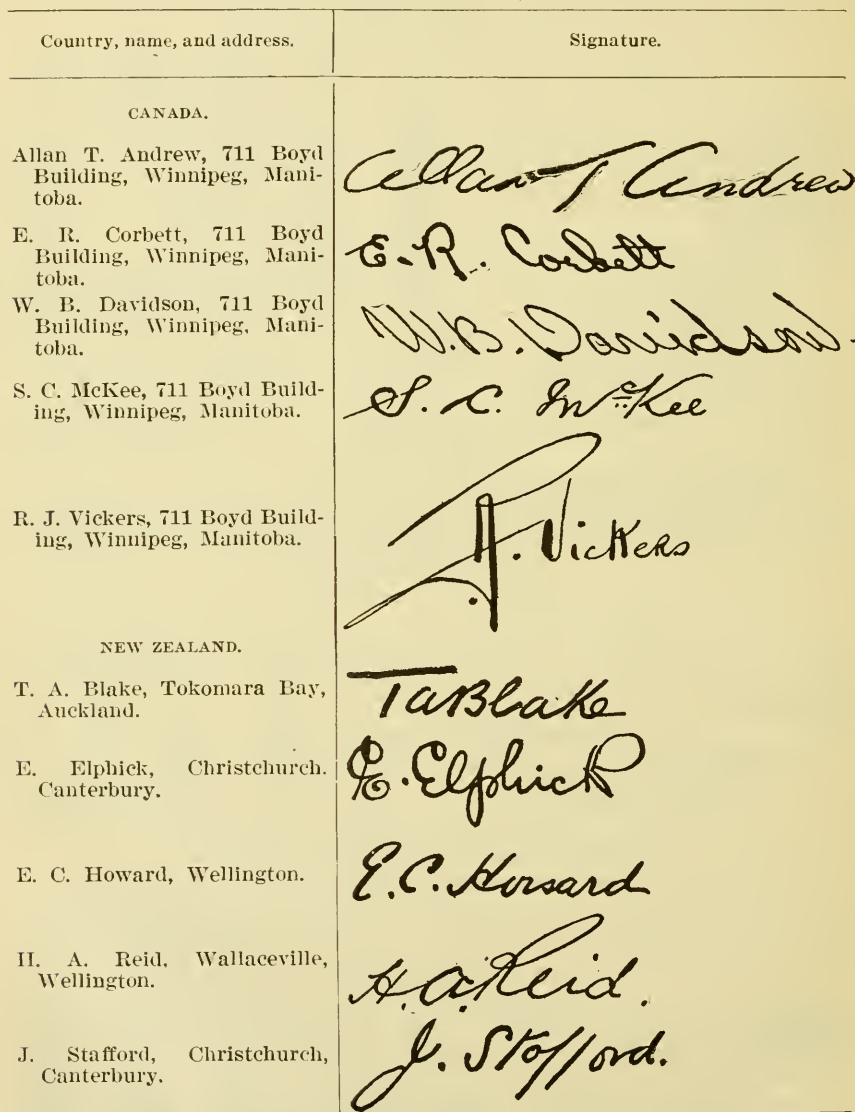 Country, name, and address. Signature.
CANADA.
Allan T. Andrew, 711 Boyd
Building, Winnipeg, Mani-
toba.
Allan T Andrew
E. R. Corbett, 711 Boyd
Building, Winnipeg, Mani-
toba.
E. R. Corbett
W. B. Davidson, 711 Boyd
Building, Winnipeg, Mani-
toba.
W. B. Davidson.
S. C. McKee, 711 Boyd Build-
ing, Winnipeg, Manitoba.
S. C. McKee
R. J. Vickers, 711 Boyd Build-
ing, Winnipeg, Manitoba.
Vickers
NEW ZEALAND.
T. A. Blake, Tokomara Bay,
Auckland.
TABlake
E. Elphick, Christchurch.
Canterbury.
E. Elphick
E. C. Howard, Wellington.
E. C. Howard
H. A. Reid, Wallaceville,
Wellington.
H. A. Reid.
J. Stafford, Christchurch,
Canterbury.
J. Stafford.